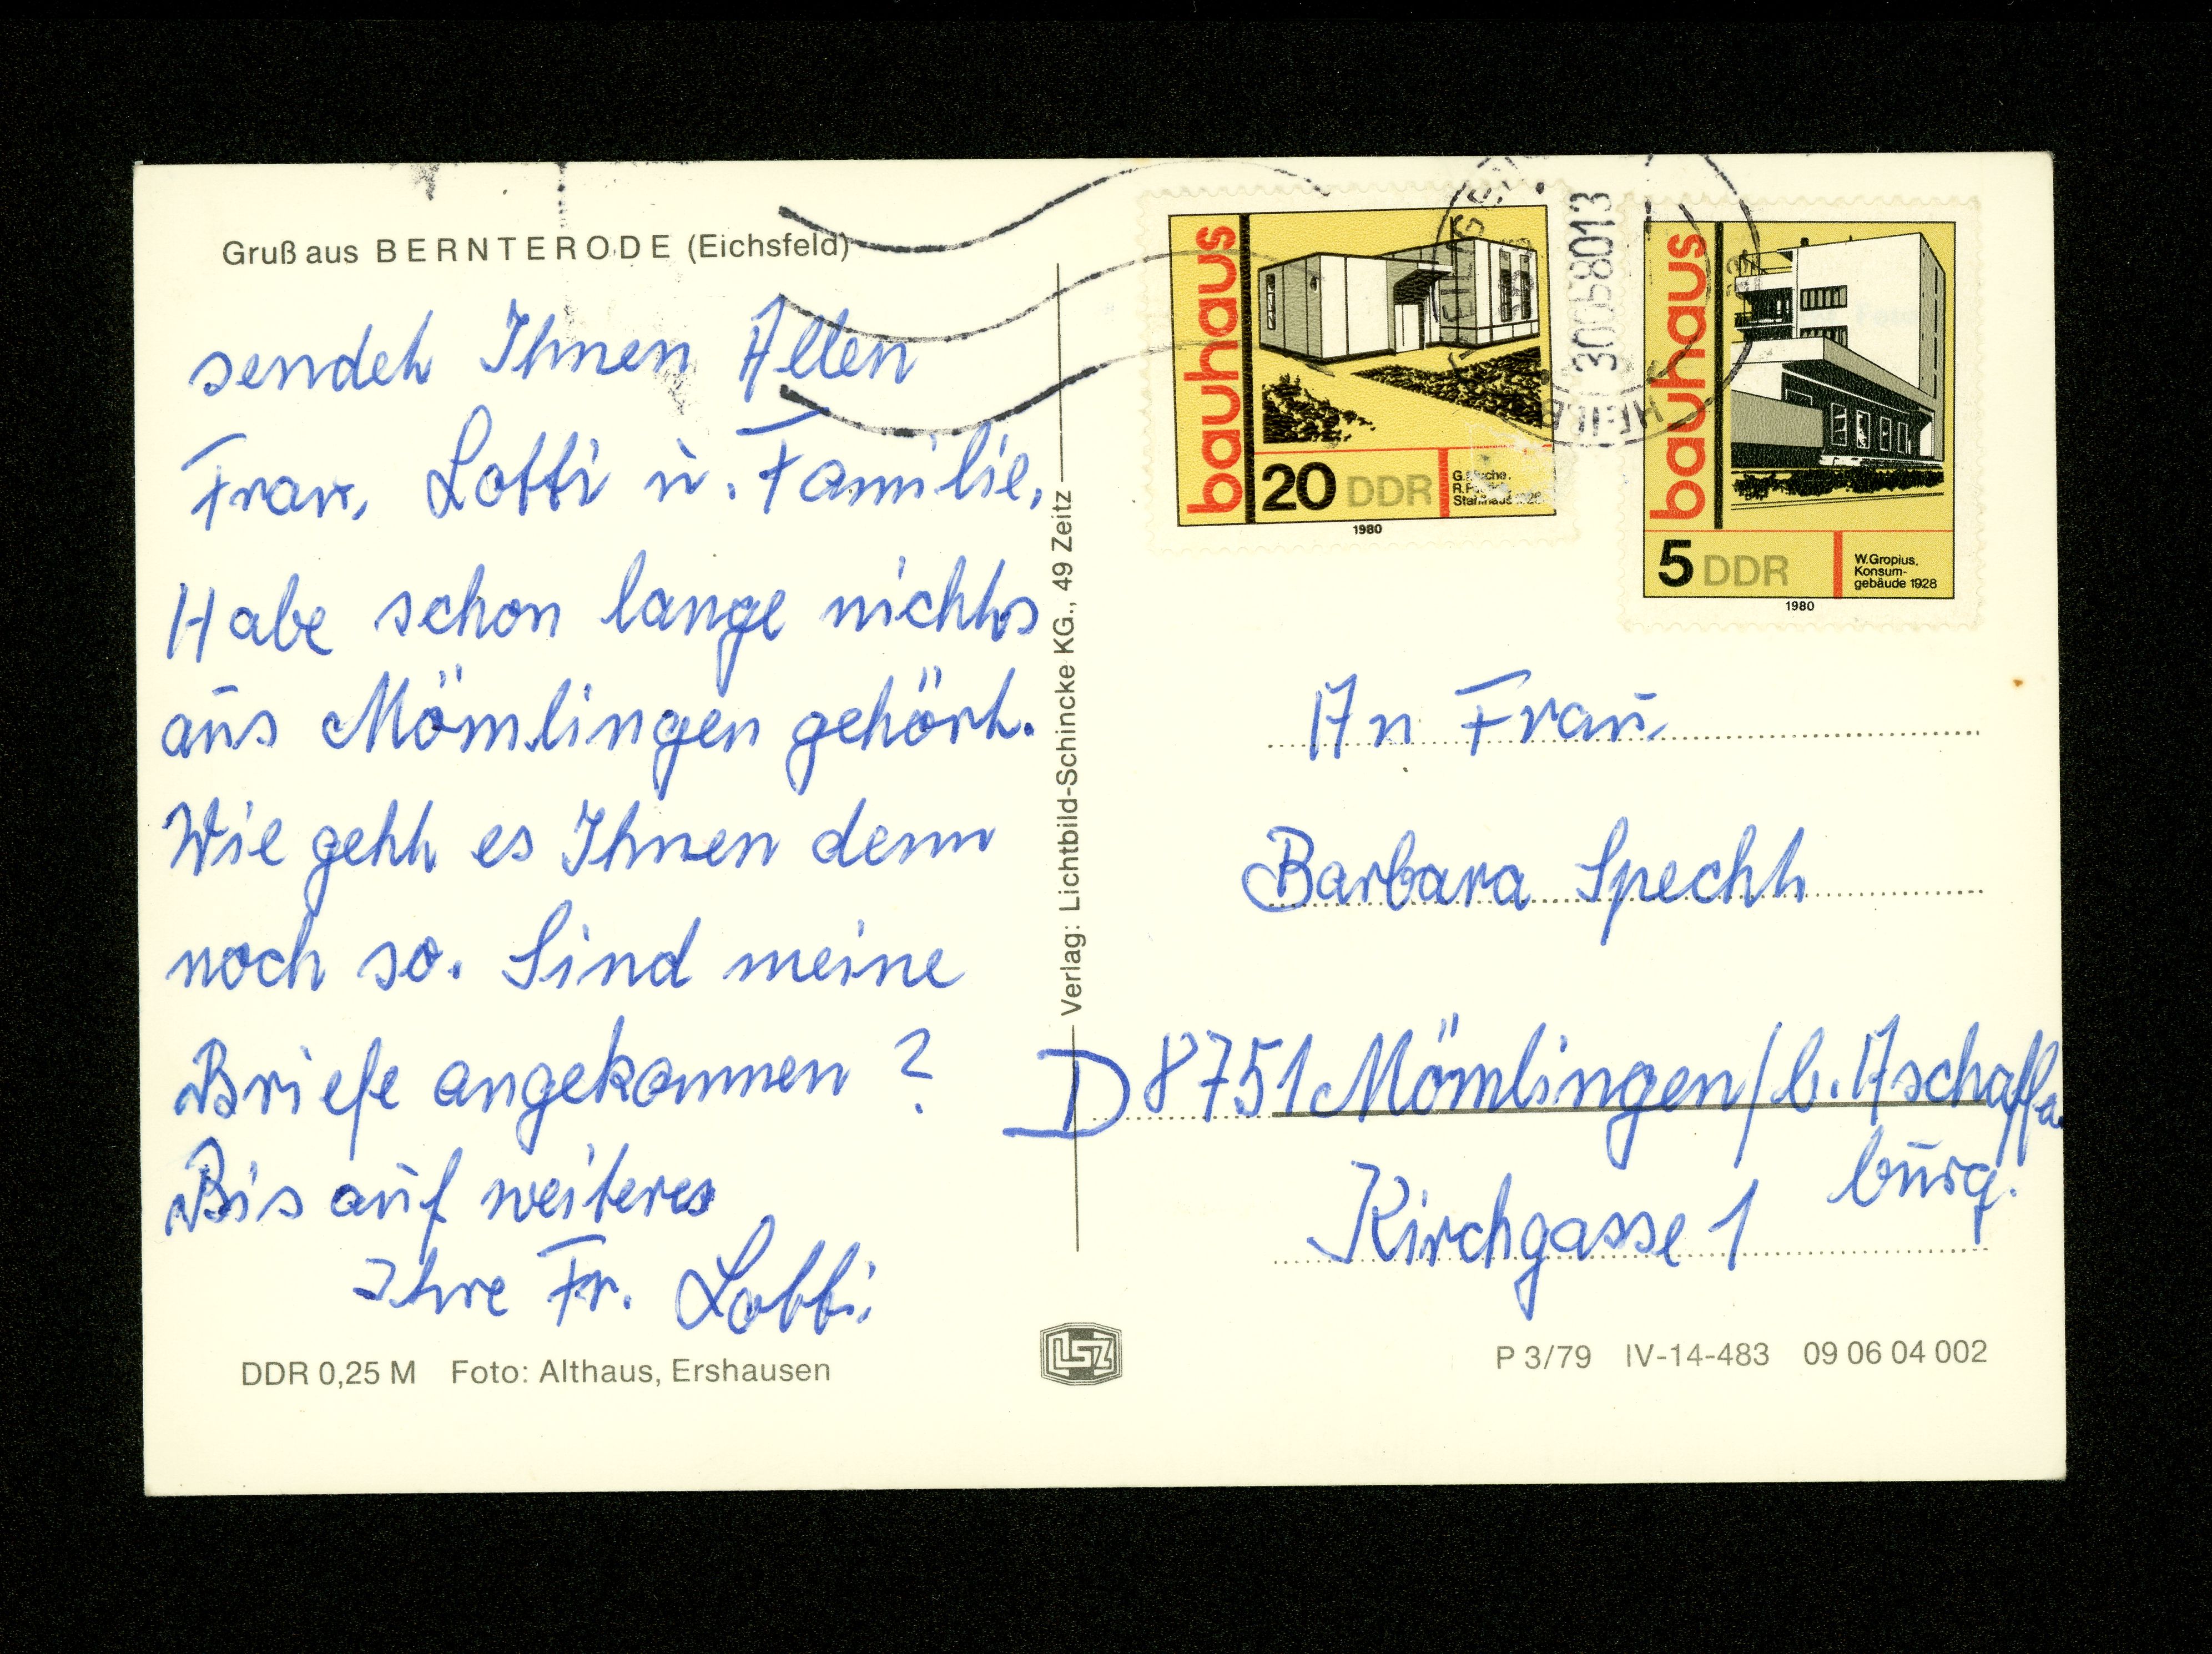 Gruß aus BERNTERODE (Eichsfeld)
sendet Ihnen Allen
Frau, Lotti u. Familie.
Habe schon lange nichts
aus Mömlingen gehört.
Wie geht es Ihnen denn
noch so. Sind meine
Briefe angekommen ?
Bis auf weiteres
Ihre Fr. Lotti.
DDR 0,25 M Foto: Althaus, Ershausen
Verlag: Lichtbild-Schincke KG., 49 Zeitz
LSZ
bauhaus
20 DDR
Stahlhaus 1926
1980
bauhaus
5 DDR
W.Gropius,
Konsum-
gebäude 1928
1980
An Frau
Barbara Specht
D 8751 Mömlingen/b. Aschaffen
burg.
Kirchgasse 1
P 3/79 IV-14-483 09 06 04 002